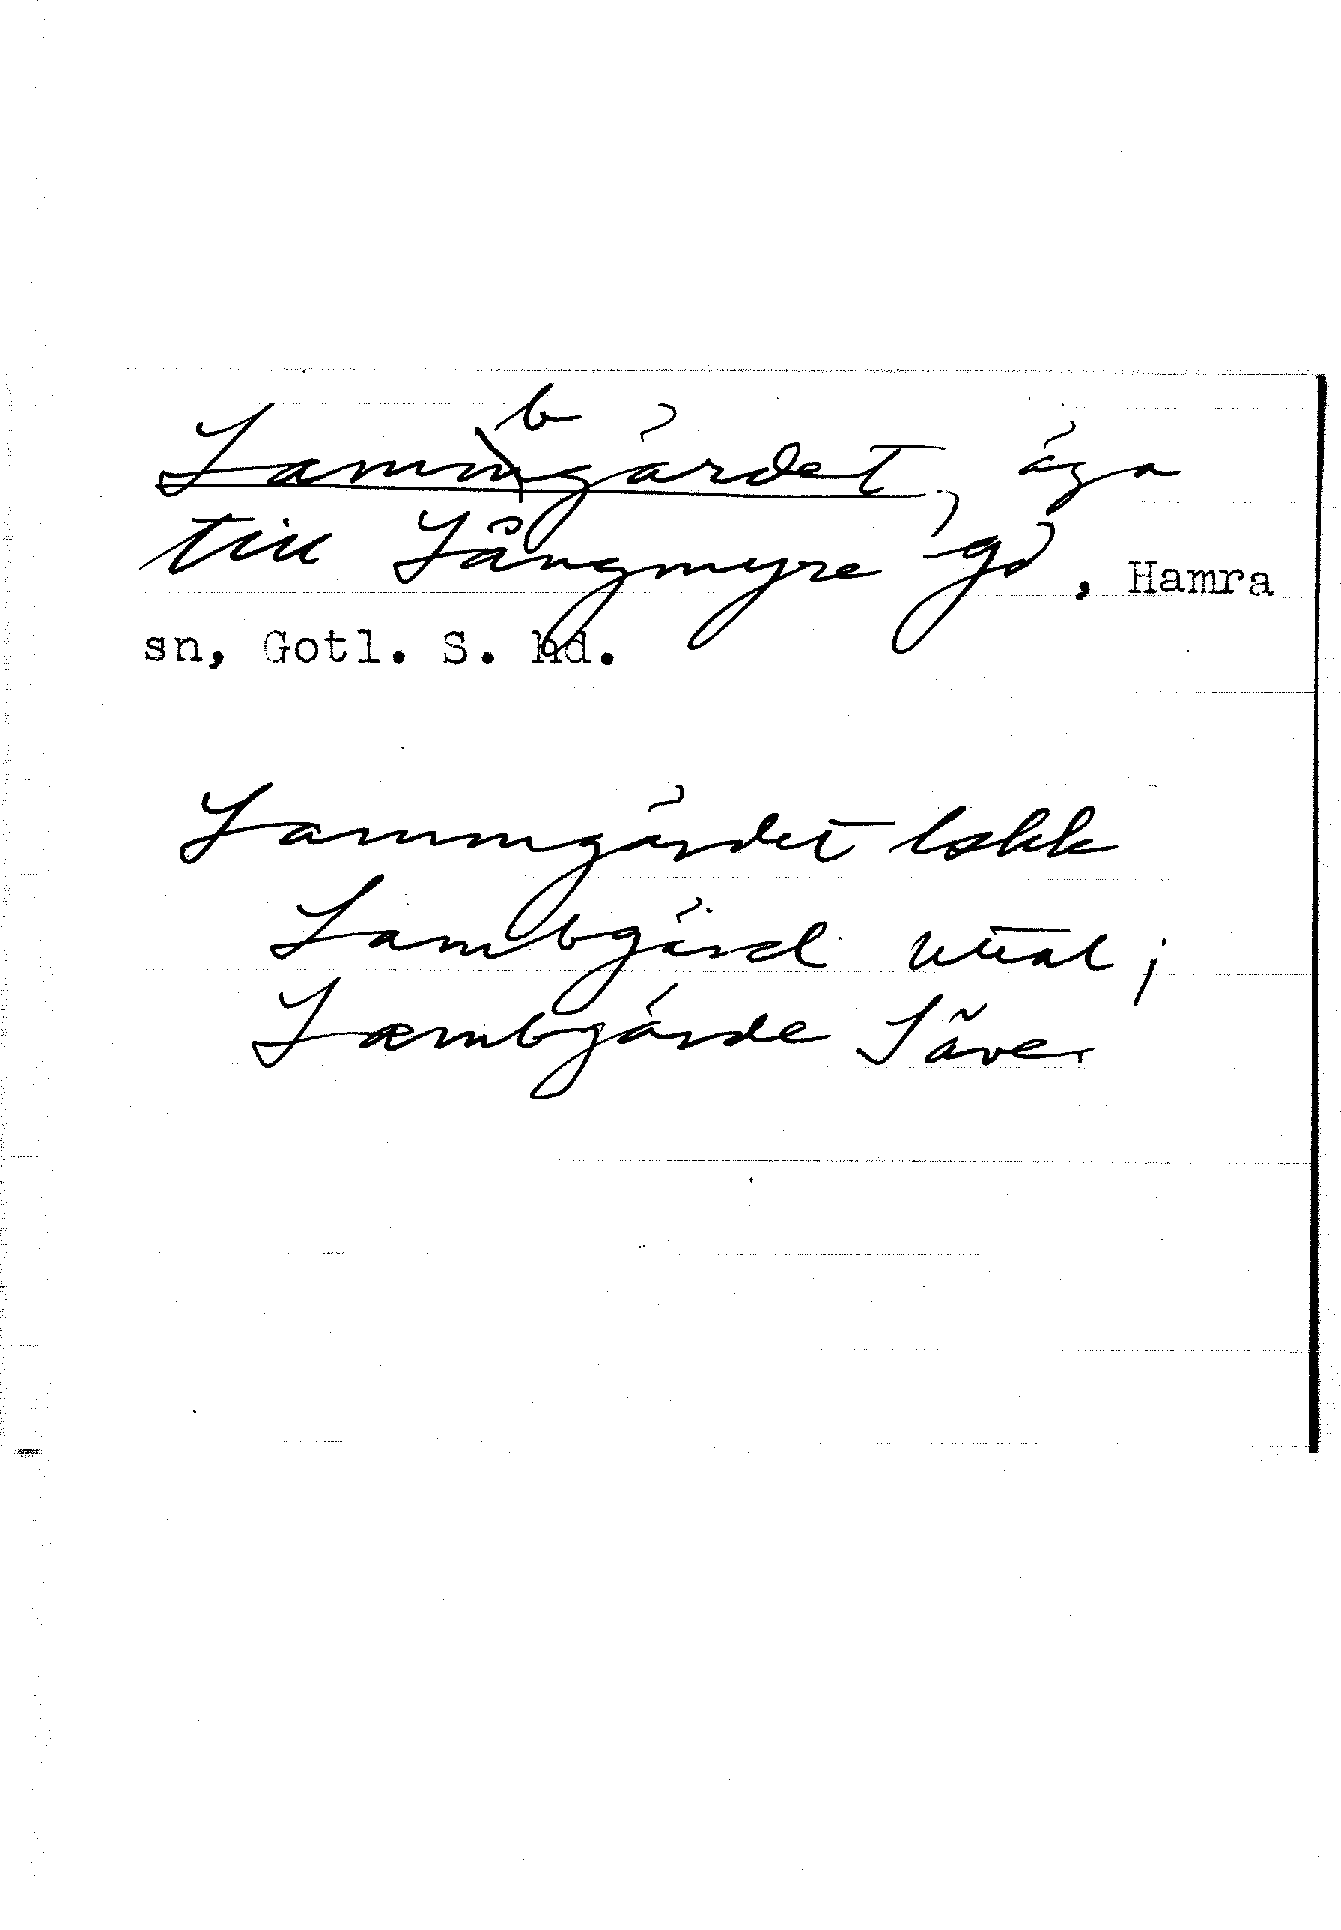 Lambgärdet, äga
till Långmyre gd, Hamra
sn, Gotl. S. hd.
Lammgärdet lskk
Lambgärd uttal;
Lambgärde Säve